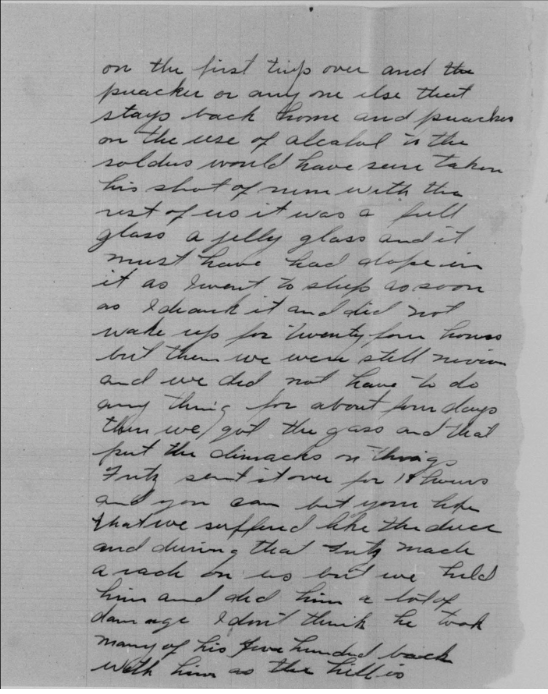 on the first trip over and the
preacher or any one else that
stays back home and preaches
on the use of alcalol in the
soldiers would have sure taken
his shot of rum with the
rest of us it was a full
glass a jelly glass and it
must have had dope in
it as I went to sleep as soon
as I drank it and did not
wake up for twenty four hours
but then we were still
and we did not have to do
any thing for about four days
then we got the gass and that
put the on things
Fritz sent it over for 18 hours
and you can bet your life
that we suffered like the duce
and during that Fritz made
a raid on us but we held
him and did him a lot of
damage I don't think he took
many of his five hundred back
with him as the hill is